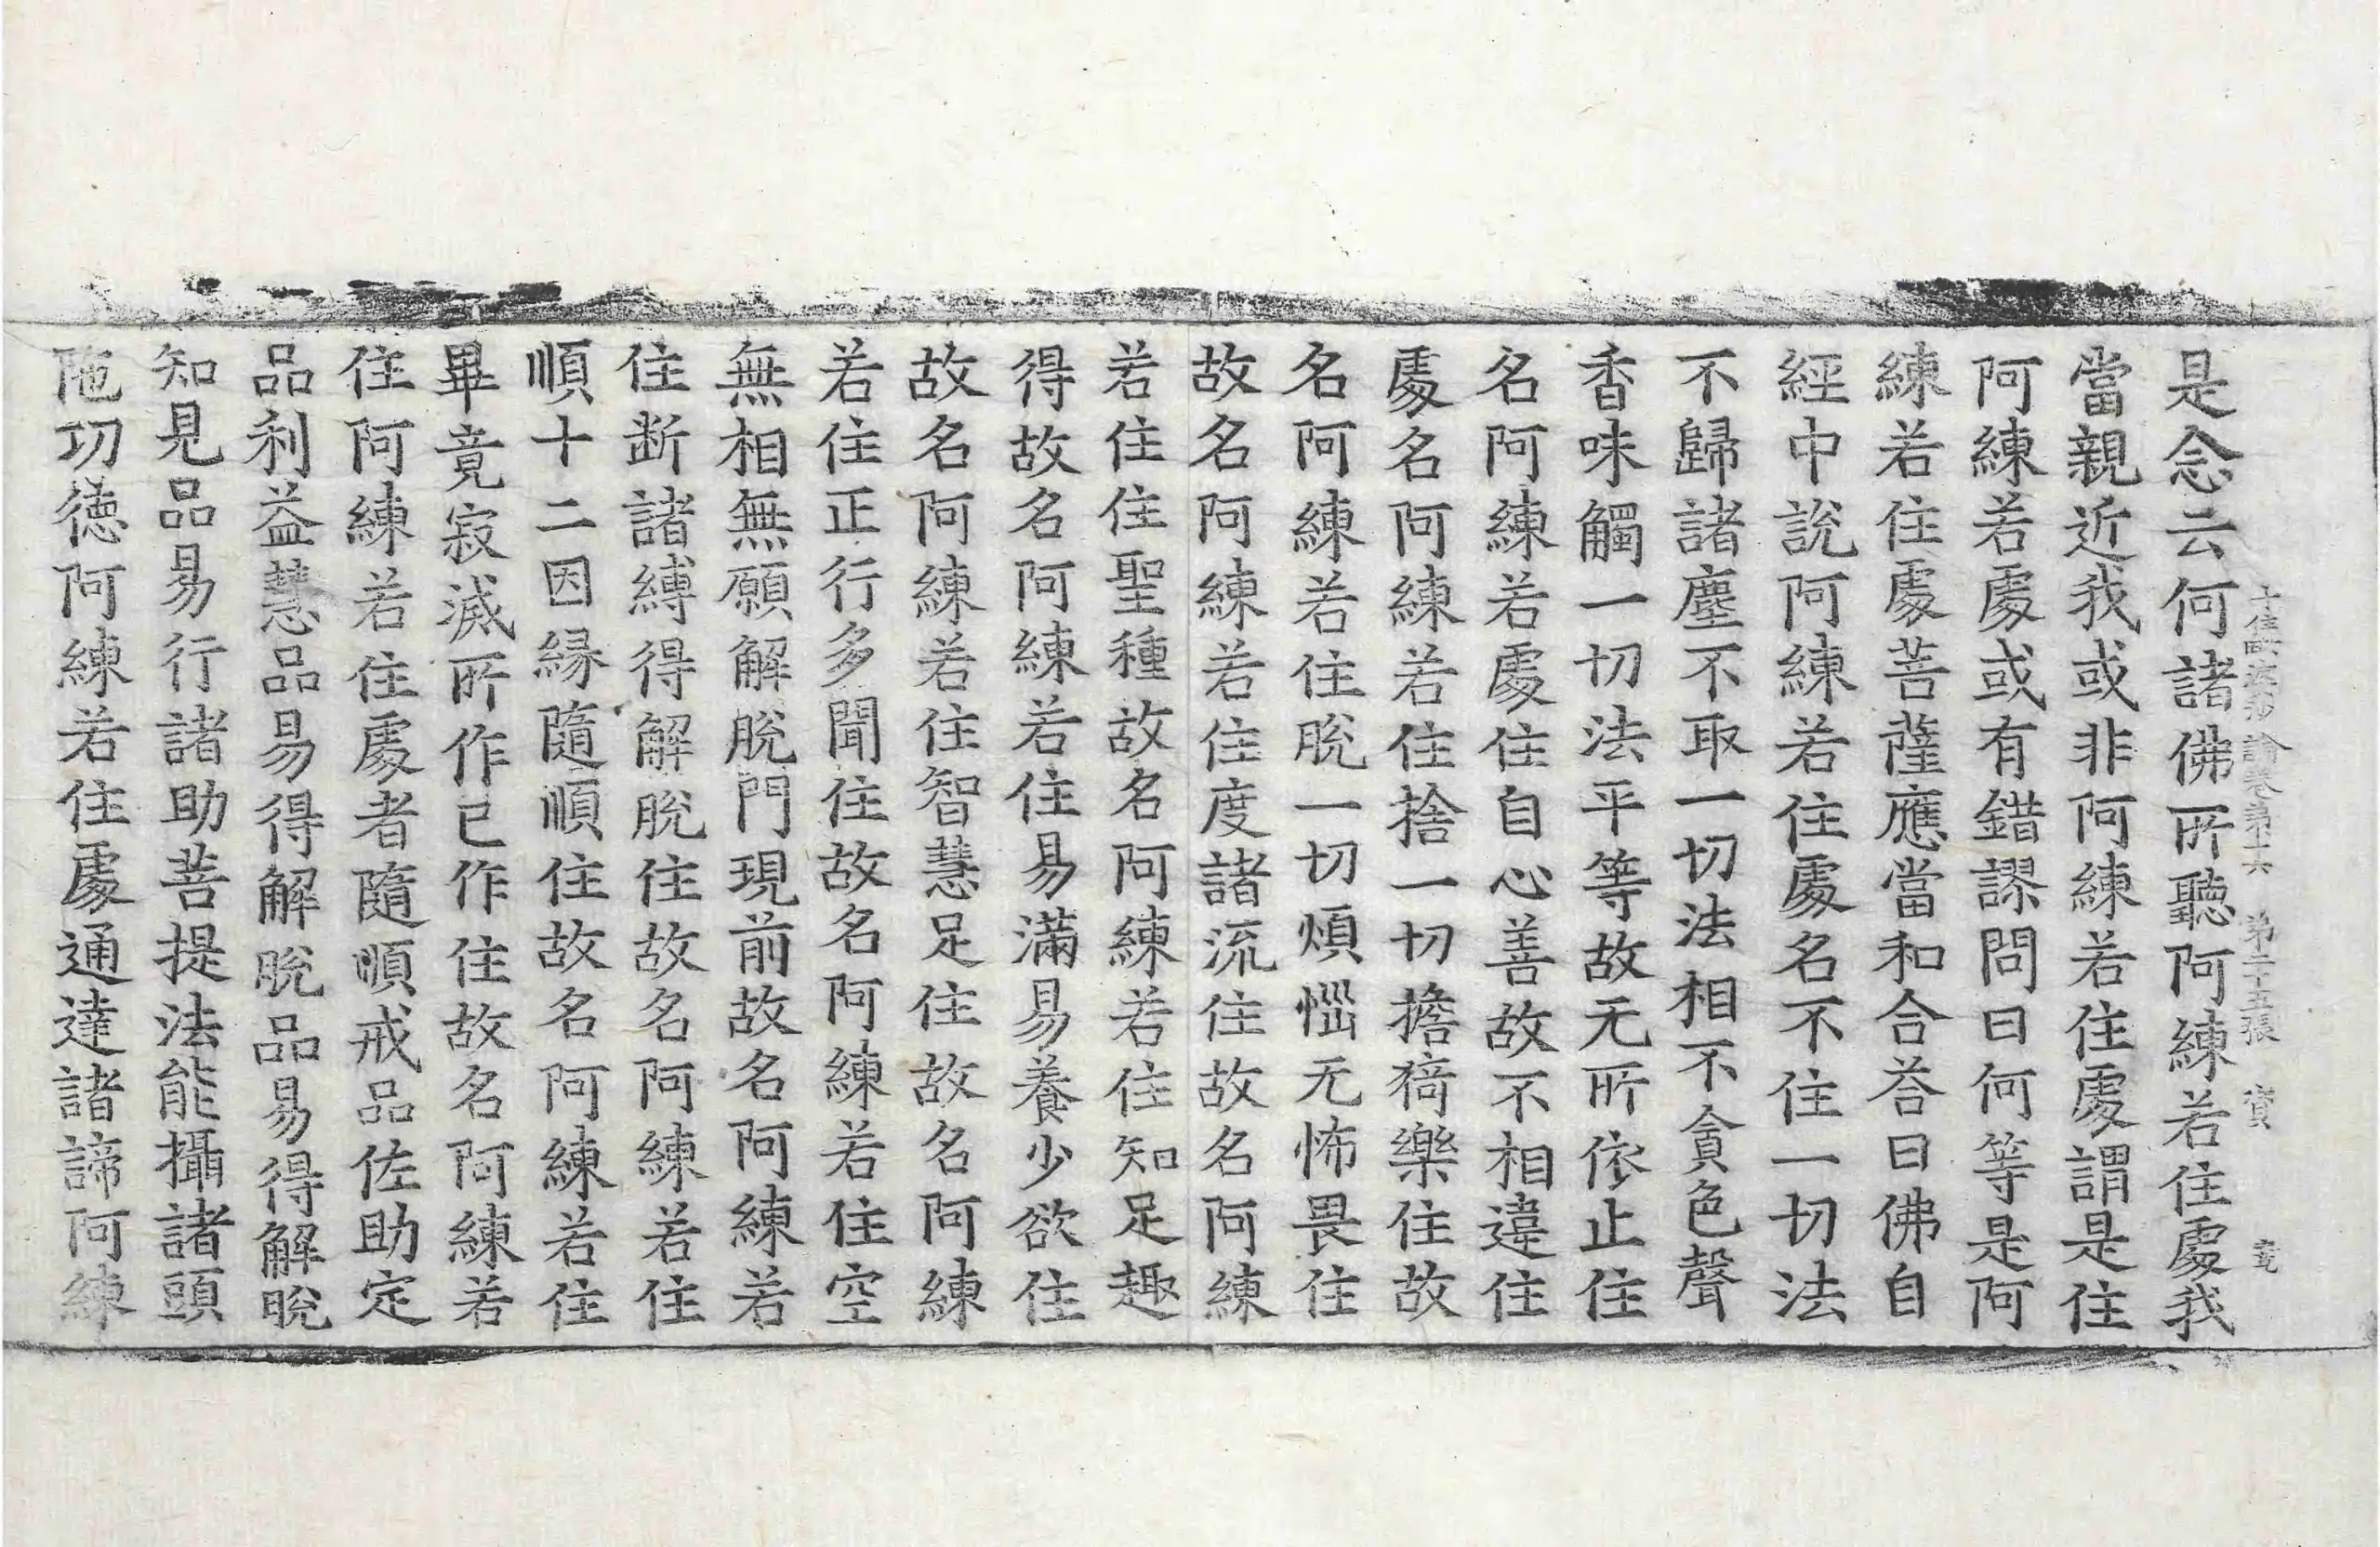 十住毗婆沙論卷第十六 第二十五張 寶
是念云何諸佛所聽阿練若住處我
當親近我或非阿練若住處謂是住
阿練若處或有錯謬問曰何等是阿
練若住處菩薩應當和合荅曰佛自
經中說阿練若住處名不住一切法
不歸諸塵不取一切法相不貪色聲
香味觸一切法平等故无所依止住
名阿練若處住自心善故不相違住
處名阿練若住捨一切擔猗樂住故
名阿練若住脫一切煩惱无怖畏住
故名阿練若住度諸流住故名阿練
若住住聖種故名阿練若住知足趣
得故名阿練若住易滿易養少欲住
故名阿練若住智慧足住故名阿練
若住正行多聞住故名阿練若住空
無相無願解脫門現前故名阿練若
住断諸縛得解脫住故名阿練若住
順十二因緣隨順住故名阿練若住
畢竟寂滅所作已作住故名阿練若
住阿練若住處者隨順戒品佐助定
品利益慧品易得解脫品易得解脫
知見品易行諸助菩提法能攝諸頭
陁功德阿練若住處通達諸諦阿練